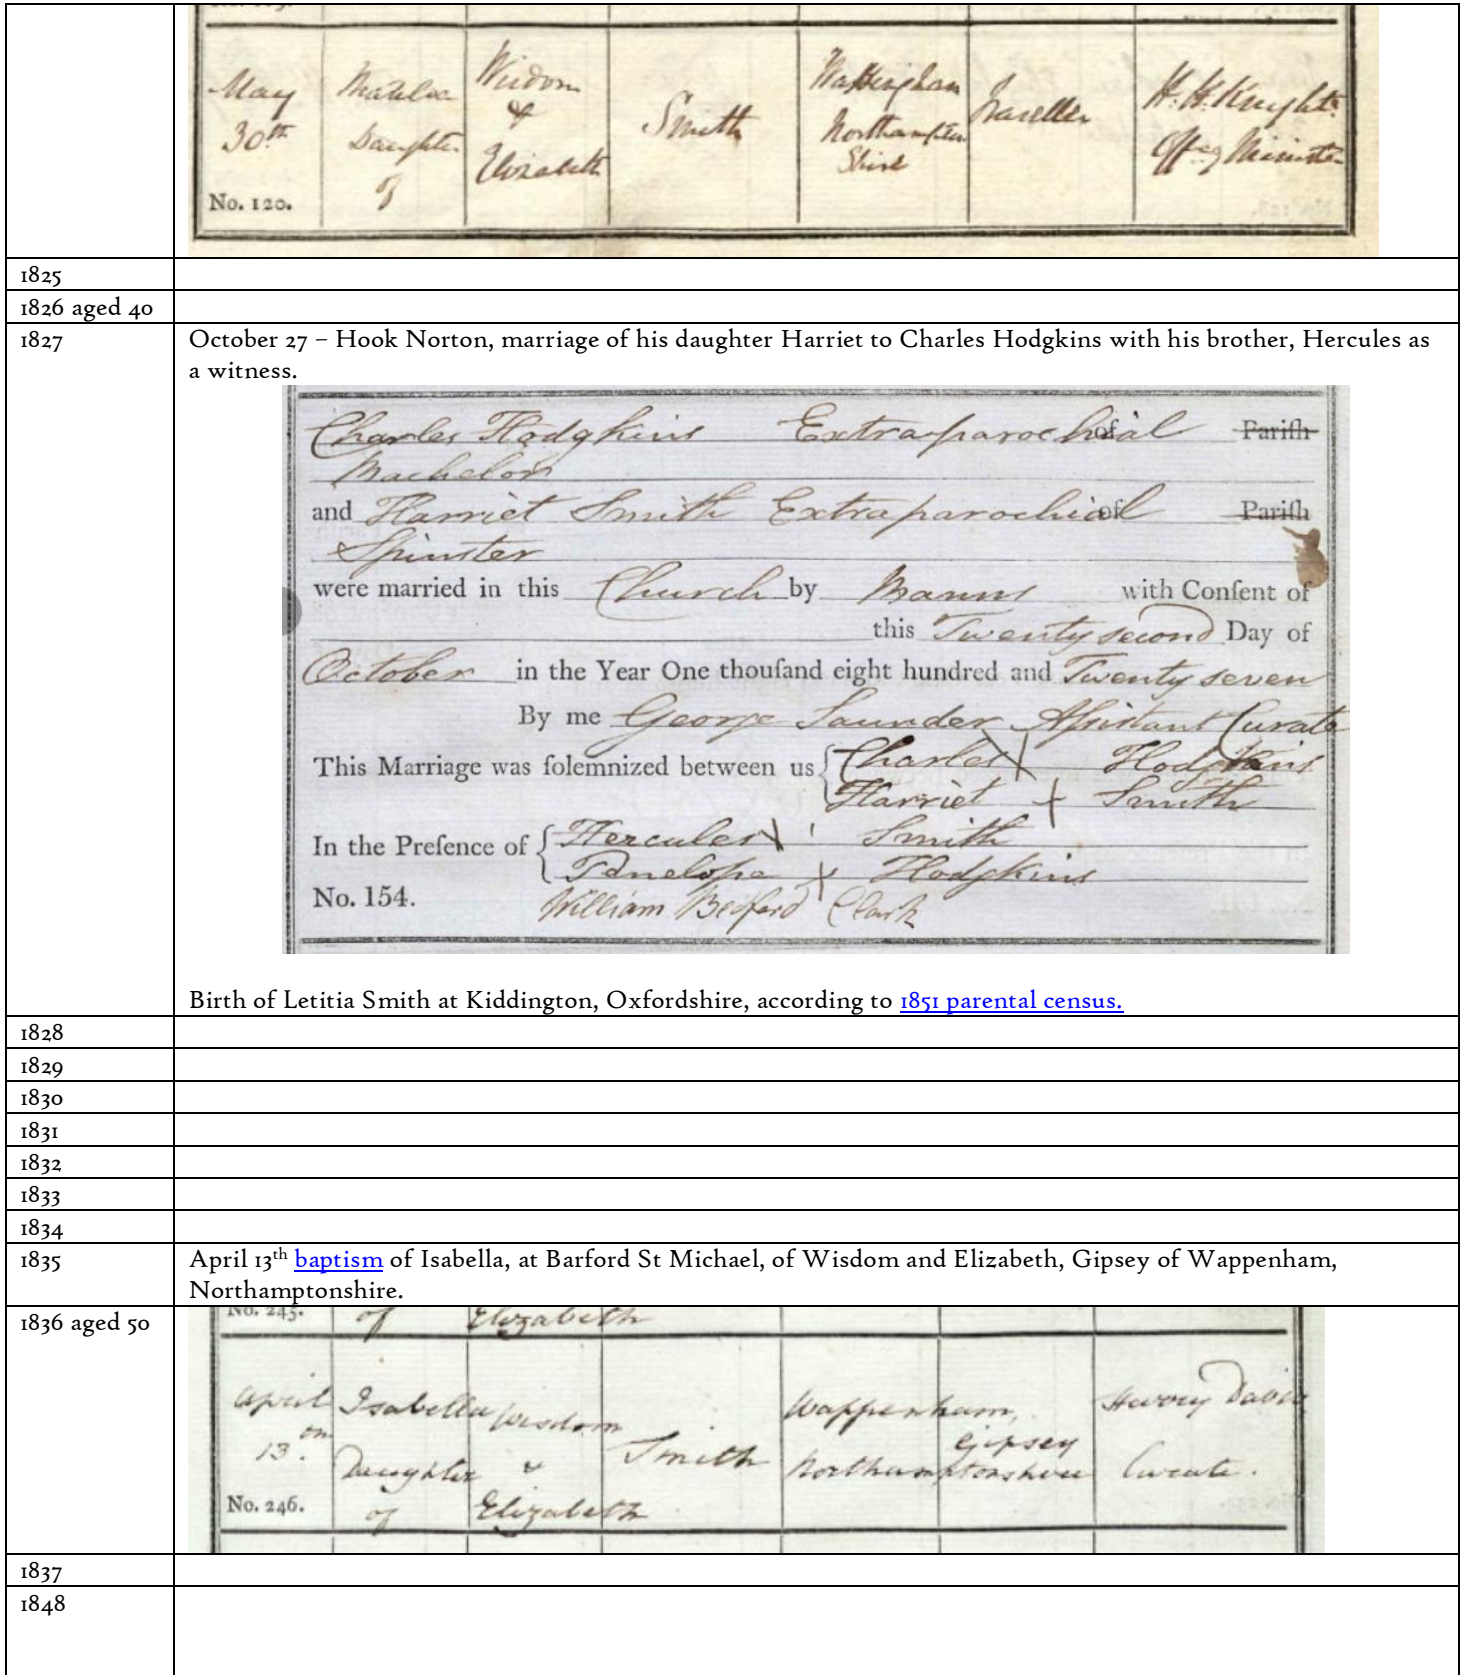 May Matilda Wisdom
30th Daughter & Smith Northampton Traveller H. H. Knight
of Elizabeth Shire Offg Minister
No. 120.
1825
1826 aged 40
1827 October 27 – Hook Norton, marriage of his daughter Harriet to Charles Hodgkins with his brother, Hercules as
a witness.
Charles Hodgkins Extraparochial of Parish
Bachelor
and Harriet Smith Extraparochial of Parish
Spinster
were married in this Church by Banns with Consent of
this Twenty second Day of
October in the Year One thousand eight hundred and Twenty seven
By me George Saunder Assistant Curate
This Marriage was solemnized between us Charles X Hodgkins
Harriet + Smith
In the Presence of Hercules X Smith
Penelope X Hodgkins
No. 154. William Bedford Clark
Birth of Letitia Smith at Kiddington, Oxfordshire, according to 1851 parental census.
1828
1829
1830
1831
1832
1833
1834
1835 April 13th baptism of Isabella, at Barford St Michael, of Wisdom and Elizabeth, Gipsey of Wappenham,
Northamptonshire.
1836 aged 50
No. 245. of Elizabeth
April Isabella Wisdom Wappenham,
13. Daughter & Smith Northamptonshire Gipsey Curate.
No. 246. of Elizabeth
1837
1848